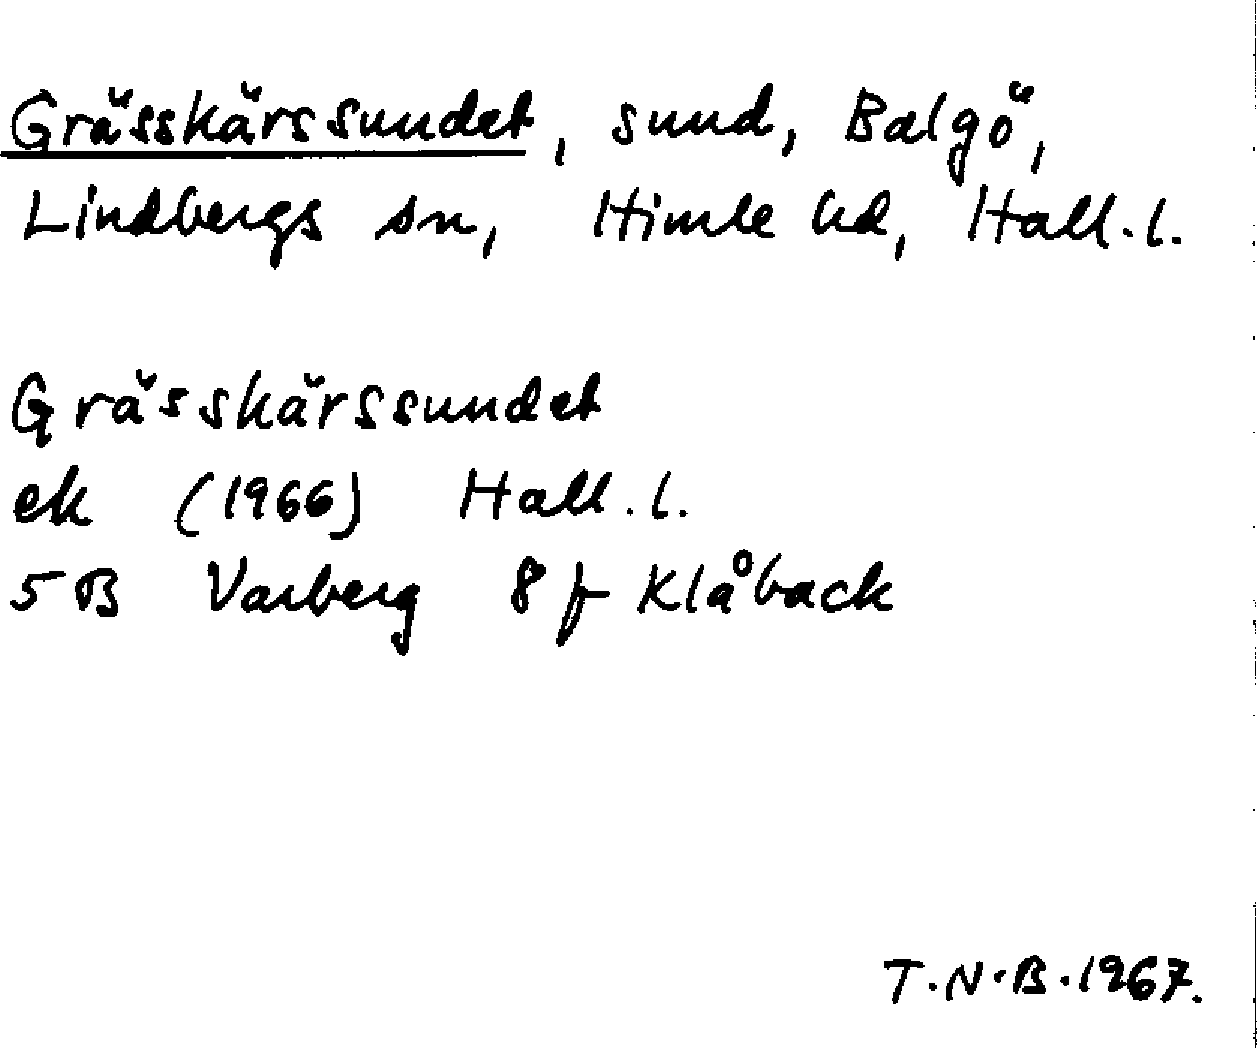 Grässkärssundet, sund, Balgö,
Lindbergs sn, Himle hd, Hall.l.
Grässkärssundet
ek (1966) Hall.l.
5B Varberg 8f Klåback
T.N.B.1967.